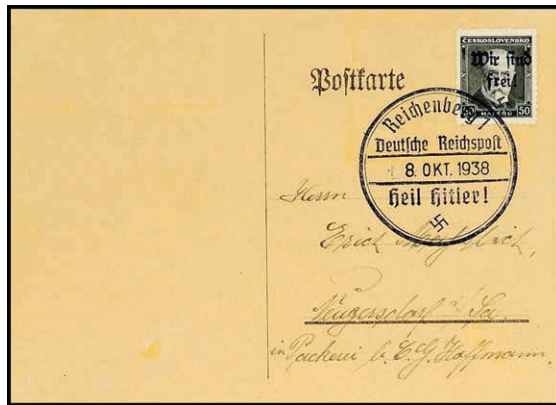 ČESKOSLOVENSKO
Wir sind
frei!
50 HALÉŘŮ 50
Postkarte
Reichenberg 1
Deutsche Reichspost
8. OKT. 1938
Heil Hitler!
Herrn
Erich
Neugersdorf i/Sa.
in Packerei b. C. G. Hoffmann.